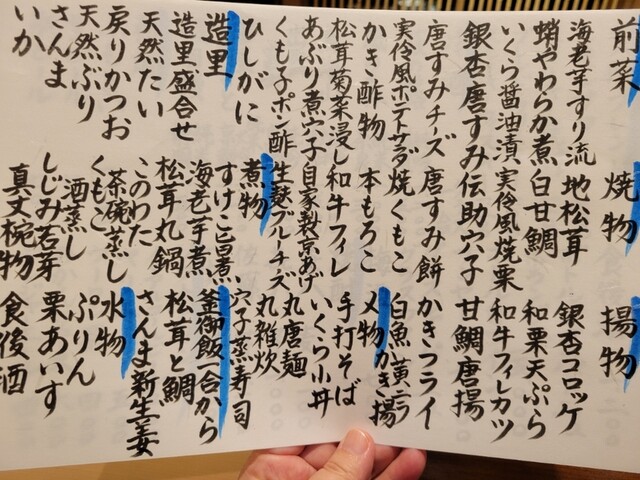 前菜
海老芋すり流
蛸やわらか煮
いくら醤油漬
銀杏 唐すみ
唐すみチーズ
実伶風ポテトサラダ
かき酢物
松茸菊菜浸し
あぶり煮穴子
くも子ポン酢
ひしがに
造里
造里盛合せ
天然たい
戻りかつお
天然ぶり
さんま
いか
焼物
地松茸
白甘鯛
実伶風焼栗
伝助穴子
唐すみ餅
焼くもこ
本もろこ
和牛フィレ
自家製京あげ
生麩ブルーチーズ
煮物
すけこ旨煮
海老芋煮
松茸丸鍋
このわた
茶碗蒸し
くもこ
酒蒸し
しじみ若芽
真丈椀物
揚物
銀杏コロッケ
和栗天ぷら
和牛フィレカツ
甘鯛唐揚
かきフライ
白魚黄ニラ
かき揚
〆物
手打そば
いくら小丼
丸唐麺
丸雑炊
穴子蒸寿司
釜御飯一合から
松茸と鯛
さんま新生姜
水物
ぷりん
栗あいす
食後酒